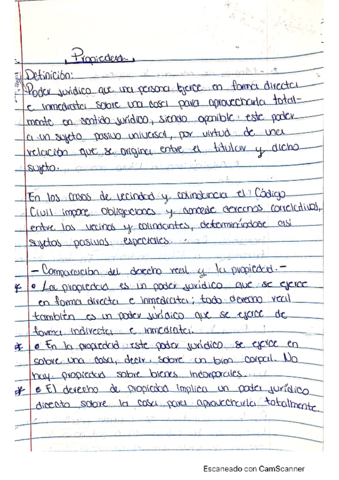 Propiedad.
Definición:
Poder jurídico que una persona ejerce en forma directa
e inmediata sobre una cosa para aprovecharla total-
mente en sentido jurídico, siendo oponible este poder
a un sujeto pasivo universal, por virtud de una
relación que se origina entre el titular y dicho
sujeto.
En los casos de vecindad y colindancia el Código
Civil impone obligaciones y concede derechos correlativos,
entre los vecinos y colindantes, determinándose así
sujetos pasivos especiales.
- Comparación del derecho real y la propiedad. -
* • La propiedad es un poder jurídico que se ejerce
en forma directa e inmediata; todo derecho real
también es un poder jurídico que se ejerce de
forma indirecta e inmediata.
* • En la propiedad este poder jurídico se ejerce en
sobre una cosa, decir, sobre un bien corporal. No
hay propiedad sobre bienes incorporales.
* • El derecho de propiedad implica un poder jurídico
directo sobre la cosa para aprovecharla totalmente.
Escaneado con CamScanner